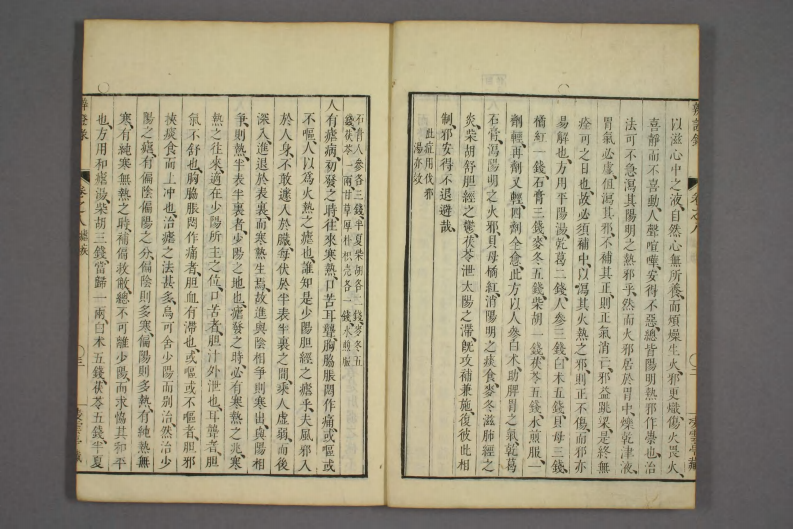 以滋心中之液自然心無所養而煩燥生火邪更熾傷火畏火
喜靜而不喜動人聲喧嘩安得不惡總皆陽明熱邪作祟也治
法可不急瀉其陽明之熱邪乎然而火邪居於胃中爍乾津液
胃氣必虛但瀉其邪不補其正則正氣消亡邪益跳梁是終無
痊可之日也故必須補中以瀉其火熱之邪則正不傷而邪亦
易解也方用平陽湯乾葛二錢人參三錢白朮五錢貝母三錢
橘紅一錢石膏三錢麥冬五錢柴胡一錢茯苓五錢水煎服一
劑輕再劑又輕四劑全愈此方以人參白朮助脾胃之氣乾葛
石膏瀉陽明之火邪貝母橘紅消陽明之痰食麥冬滋肺經之
炎柴胡舒胆經之鬱茯苓泄太陽之滯既攻補兼施復彼此相
制邪安得不退避哉
此症用伐邪
湯亦效
石膏人參各三錢半夏柴胡各二錢麥冬五
錢茯苓一兩甘草厚朴枳壳各一錢水煎服
人有瘧病初發之時往來寒熱口苦耳聾胸脇脹悶作痛或嘔或
不嘔人以為火熱之瘧也誰知是少陽胆經之瘧乎夫風邪入
於人身不敢遽入於臟每伏於半表半裏之間乘人虛弱而後
深入進退於表裏而寒熱生焉故進與陰相爭則寒出與陽相
爭則熱半表半裏者少陽之地也瘧發之時必有寒熱之兆寒
熱之往來適在少陽所主之位口苦者胆汁外泄也耳聾者胆
氣不舒也胸脇脹悶作痛者胆血有滯也或嘔或不嘔者胆邪
挾痰食而上冲也治瘧之法甚多烏可舍少陽而別治然治少
陽之瘧有偏陰偏陽之分偏陰則多寒偏陽則多熱有純熱無
寒有純寒無熱之時補偏救敝總不可離少陽而求協其和平
也方用和瘧湯柴胡三錢當歸一兩白朮五錢茯苓五錢半夏